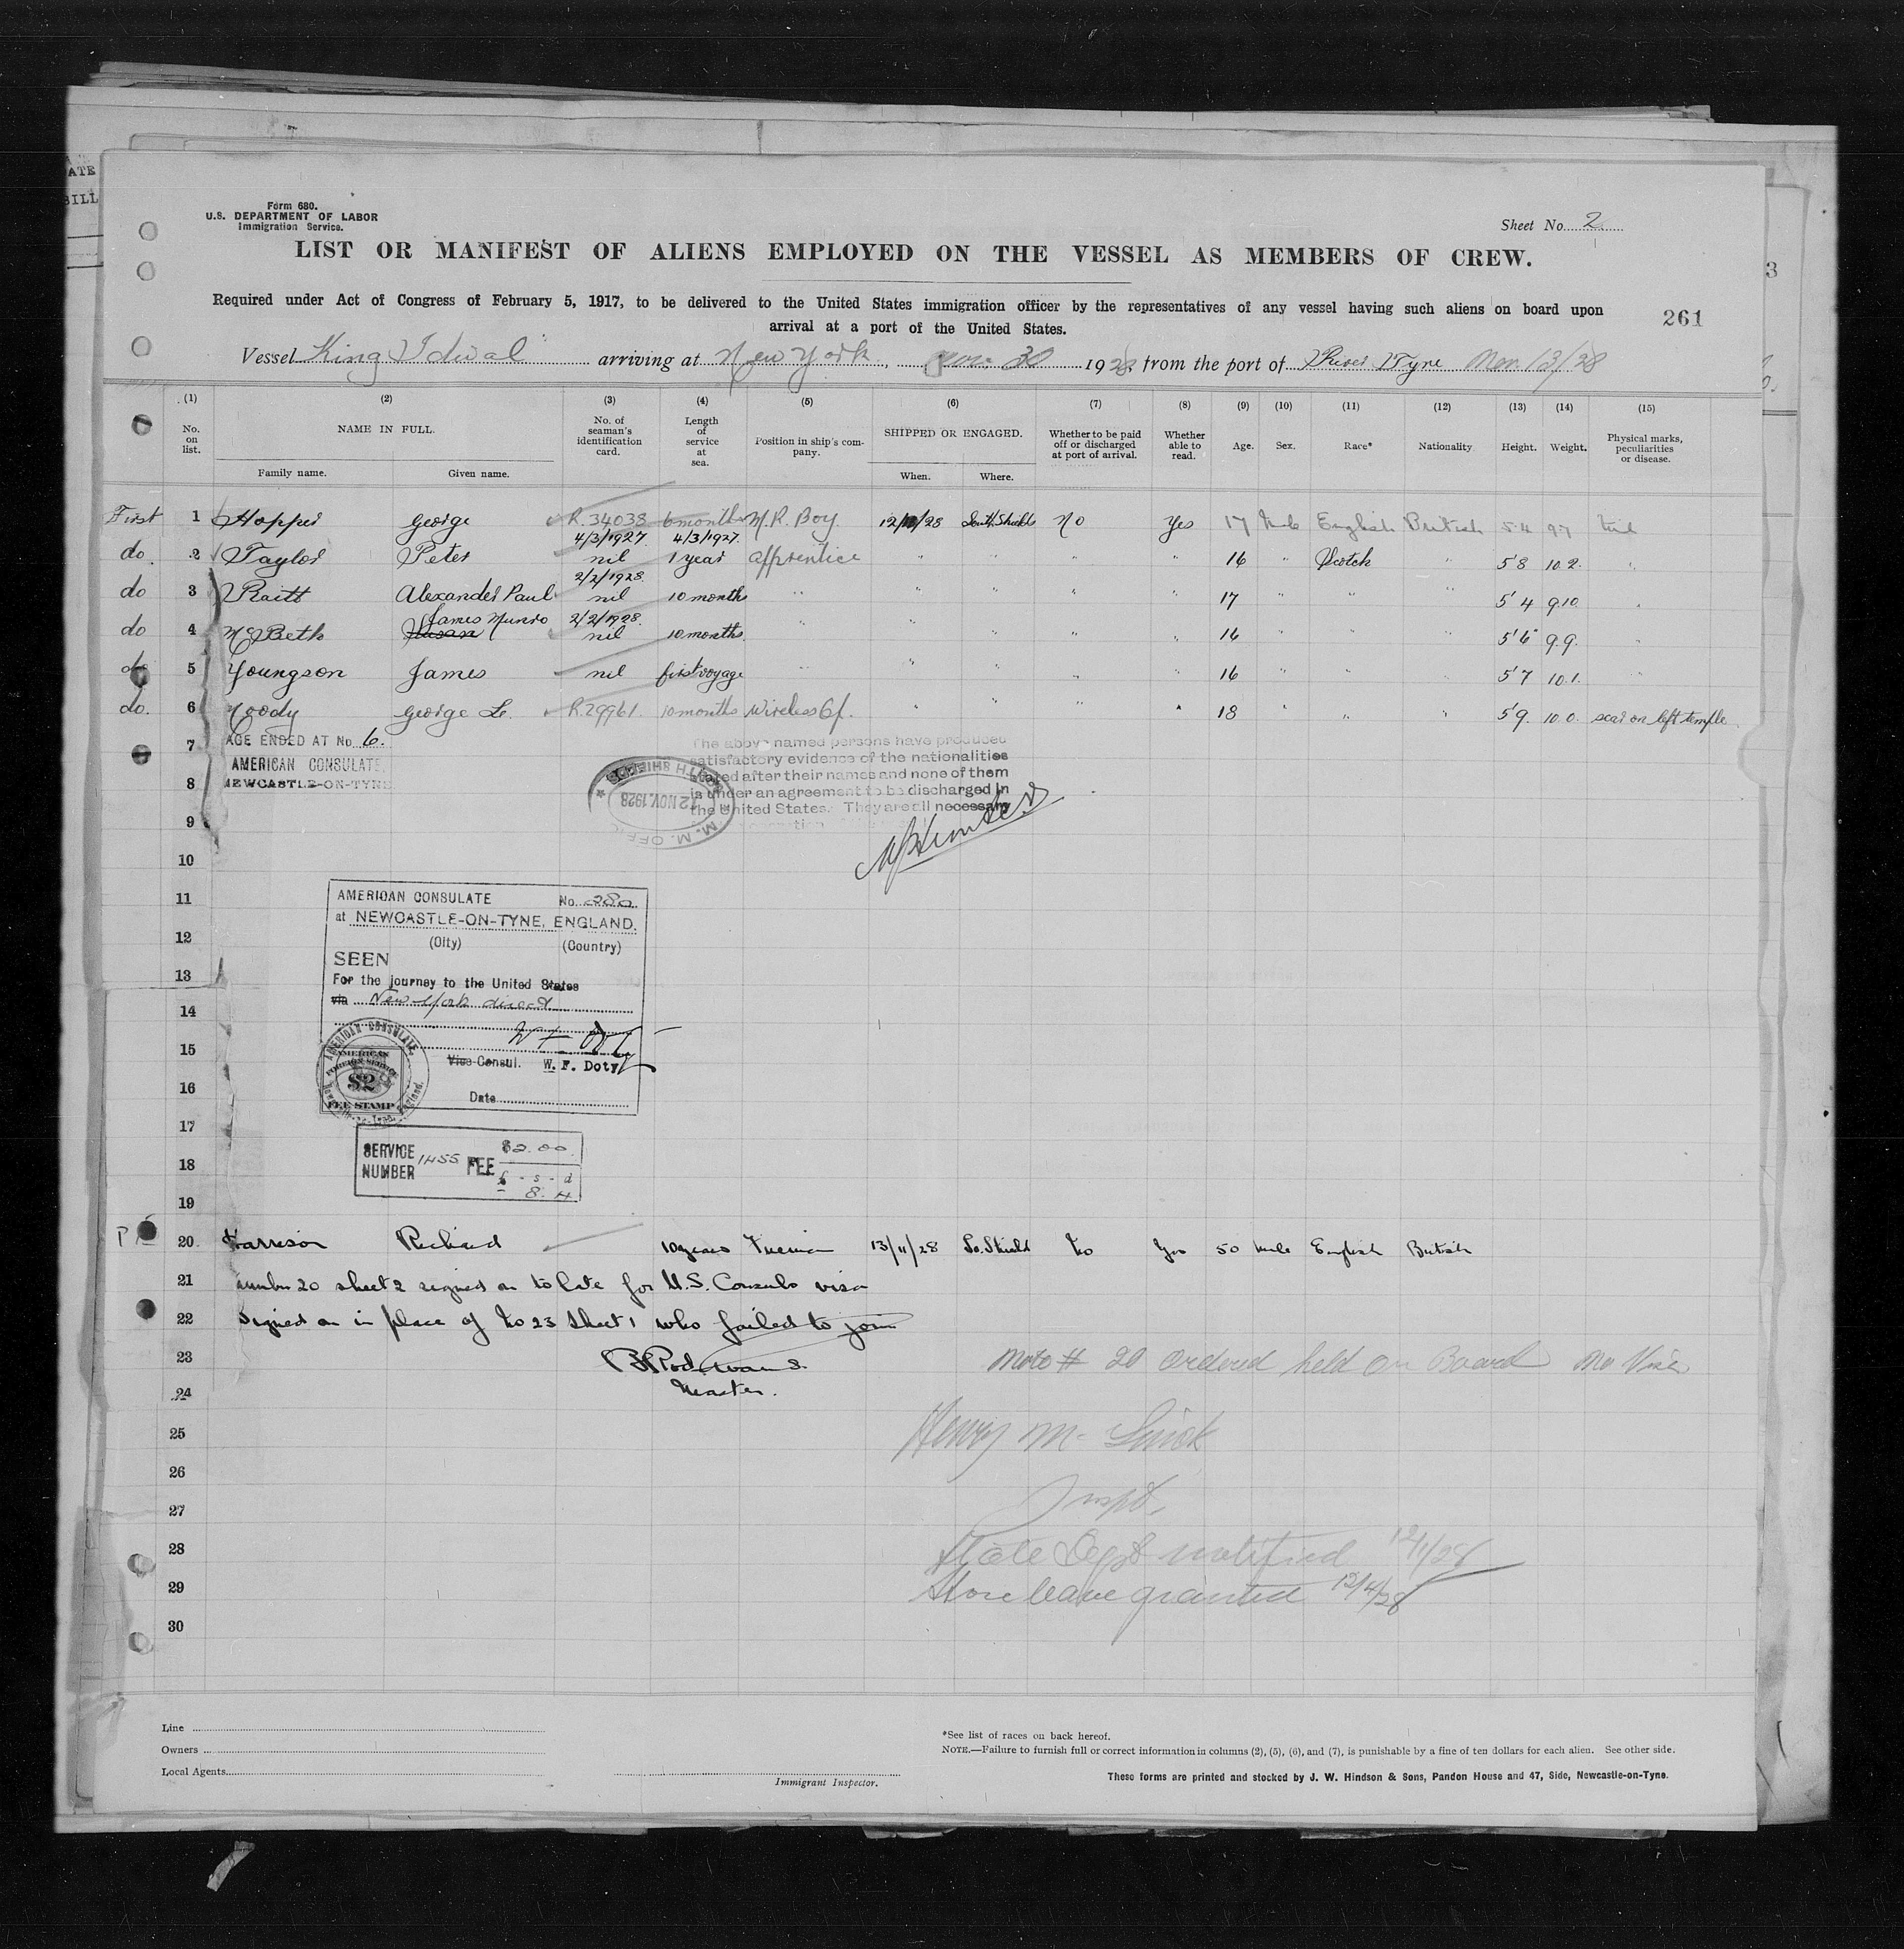 ATE
BILL
3
Form 680.
U.S. DEPARTMENT OF LABOR
Immigration Service.
Sheet No. 2
LIST OR MANIFEST OF ALIENS EMPLOYED ON THE VESSEL AS MEMBERS OF CREW.
Required under Act of Congress of February 5, 1917, to be delivered to the United States immigration officer by the representatives of any vessel having such aliens on board upon
arrival at a port of the United States.
261
Vessel King Idwal arriving at New York, Nov. 30 1928, from the port of River Tyne Nov. 13/28
(1) (2) (3) (4) (5) (6) (7) (8) (9) (10) (11) (12) (13) (14) (15)
No. on list. NAME IN FULL. Family name. Given name. No. of seaman's identification card. Length of service at sea. Position in ship's company. SHIPPED OR ENGAGED. When. Where. Whether to be paid off or discharged at port of arrival. Whether able to read. Age. Sex. Race* Nationality Height. Weight. Physical marks, peculiarities or disease.
First 1 Hopper George R.34038 6 months M.R. Boy 12/11/28 South Shields No Yes 17 Male English British 5.4 9.7 nil
4/3/1927 4/3/1927
do. 2 Taylor Peter nil 1 year apprentice " " " " 16 " Scotch " 5'8 10.2. "
2/2/1928
do 3 Raitt Alexander Paul nil 10 months " " " " " 17 " " " 5'4 9.10 "
James Munro 2/2/1928
do 4 McBeth Susan nil 10 months " " " " " 16 " " " 5'6" 9.9. "
do 5 Youngson James nil first voyage " " " " " 16 " " " 5'7 10.1. "
do. 6 Moody George L. R.29961 10 months Wireless Of. " " " " 18 " " " 5'9. 10.0. scar on left temple
7 AGE ENDED AT No 6.
8 AMERICAN CONSULATE,
NEWCASTLE-ON-TYNE
The above named persons have produced
satisfactory evidence of the nationalities
stated after their names and none of them
is under an agreement to be discharged in
the United States. They are all necessary
SOUTH SHIELDS
12 NOV. 1928
M. M. OFFICE
9
10
11
12
13
14
15
16
17
18
19
AMERICAN CONSULATE No. 280
at NEWCASTLE-ON-TYNE, ENGLAND.
(City) (Country)
SEEN
For the journey to the United States
via New York direct
Vice Consul. W. F. Doty
Date
AMERICAN CONSULATE
AMERICAN
FOREIGN SERVICE
$2
FEE STAMP
SERVICE NUMBER 1455 FEE $2.00
£ - s - d
8. 4
20 Harrison Richard 10 years Fireman 13/11/28 So. Shield No Yes 50 male English British
21 number 20 sheet 2 signed on to late for U.S. Consuls visa
22 Signed on in place of No 23 Sheet 1 who failed to join
23
24 Master.
Note # 20 ordered held on Board no Visa
25 Henry M.
26
27 Inspt.
28 State Dept notified 12/1/28
29 Shore leave granted 12/4/28
30
Line
Owners
Local Agents
Immigrant Inspector.
*See list of races on back hereof.
NOTE.—Failure to furnish full or correct information in columns (2), (5), (6), and (7), is punishable by a fine of ten dollars for each alien. See other side.
These forms are printed and stocked by J. W. Hindson & Sons, Pandon House and 47, Side, Newcastle-on-Tyne.